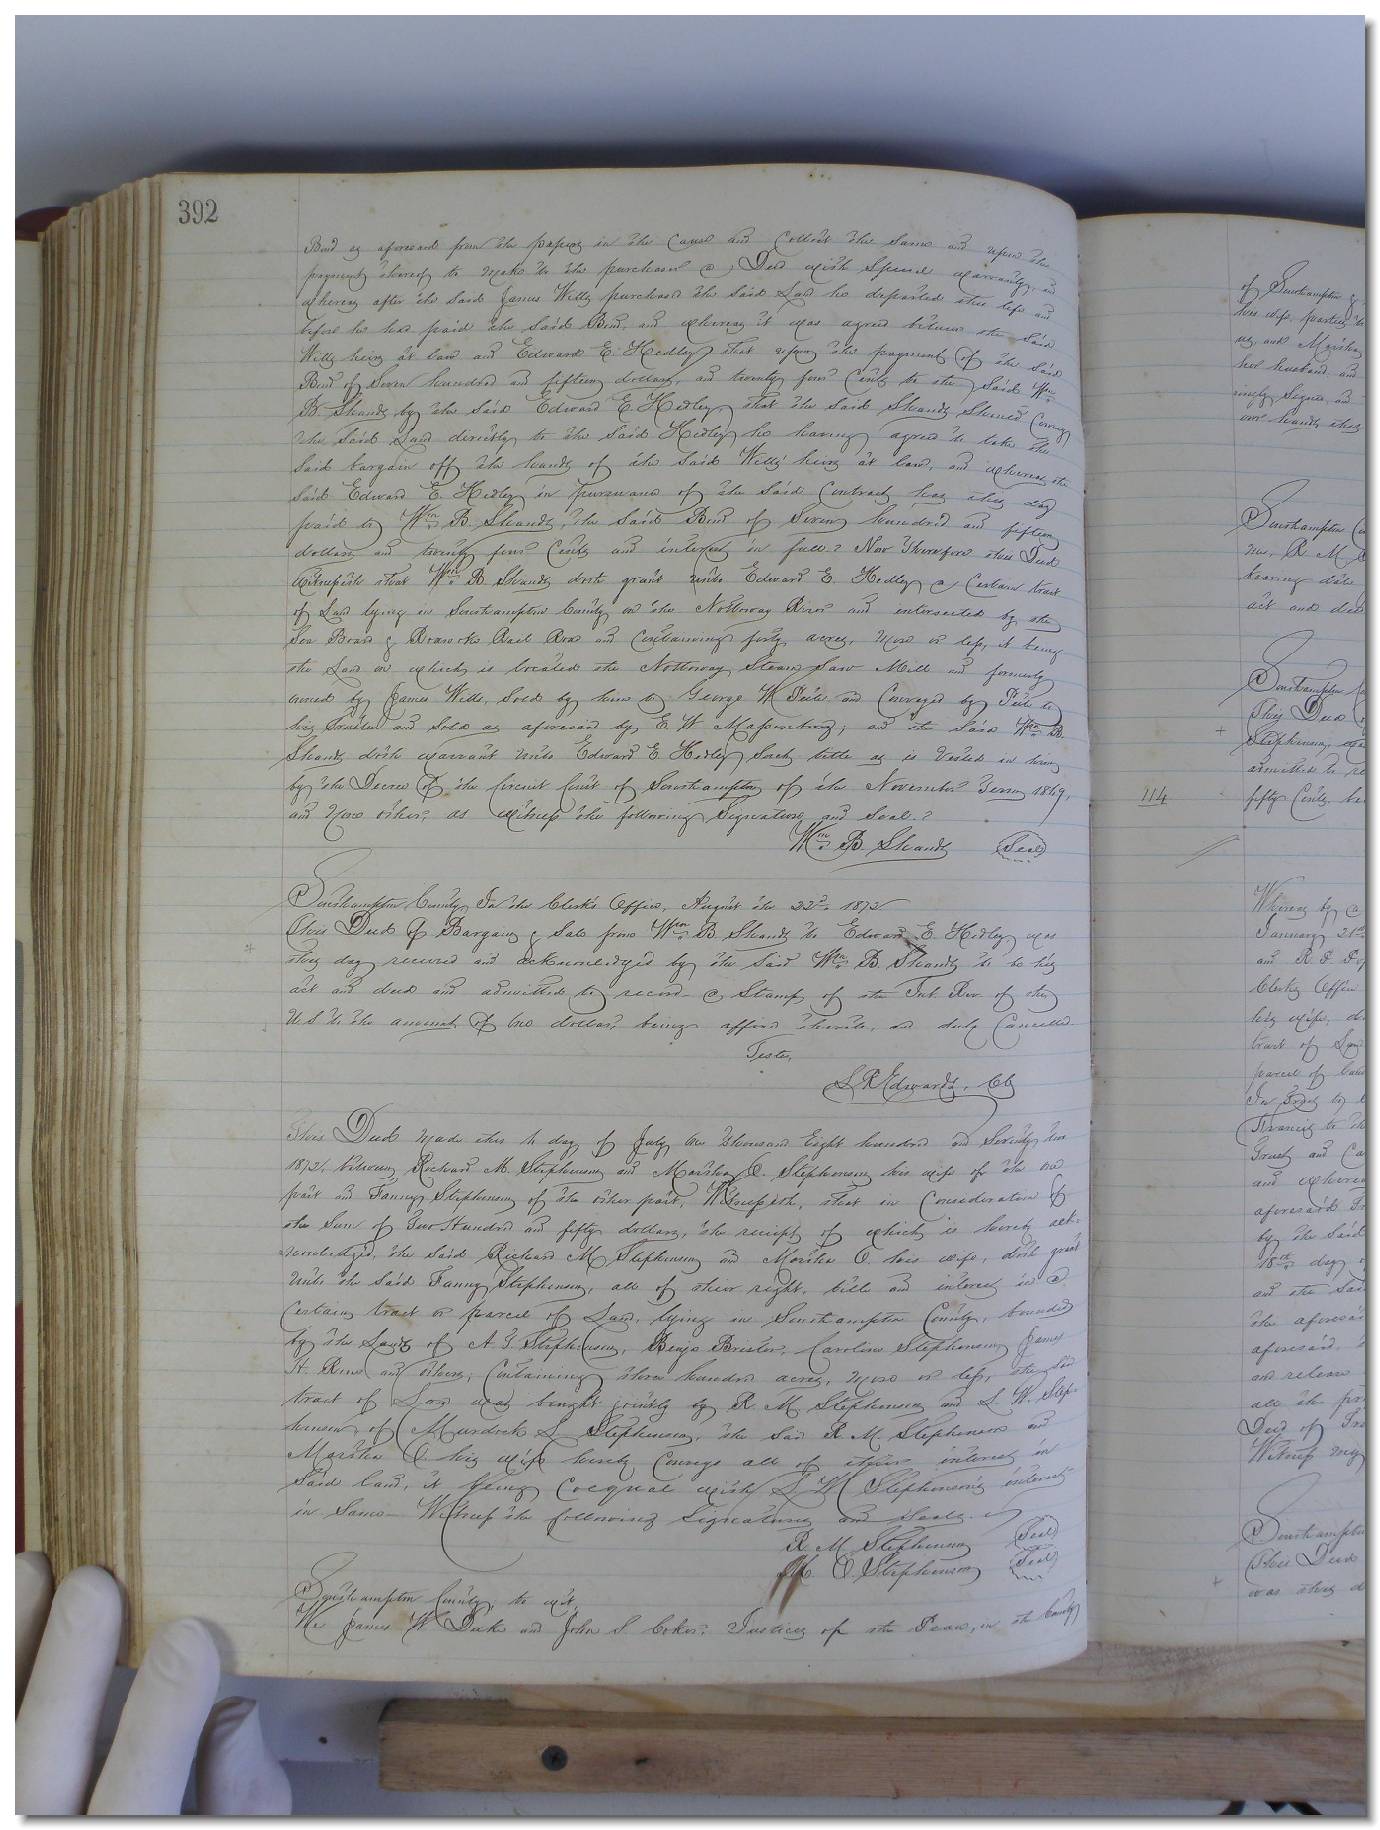 392
Bond as aforesaid from the papers in the Cause and Collect the same and upon the
payment thereof to make to the purchaser a Deed with Special warranty, and
whereas after the said James Wills purchased the said Land he departed this life and
before he had paid the said Bond, and whereas it was agreed between the said
Wills heirs at law and Edward E. Hedley that upon the payment of the said
Bond of Seven hundred and fifteen dollars, and twenty four Cents to the said Wm
B Shands by the said Edward E. Hedley, that the said Shands Should Convey
the said Land directly to the said Hedley he having agreed to take the
said bargain off the hands of the said Wills' heirs at law, and whereas the
said Edward E. Hedley in pursuance of the said Contract has this day
paid to Wm B. Shands, the said Bond of Seven hundred and fifteen
dollars and twenty four Cents and interest in full. Now Therefore this Deed
Witnesseth that Wm B. Shands doth grant unto Edward E. Hedley a Certain tract
of Land lying in Southampton County on the Nottoway River and intersected by the
Sea Board & Roanoke Rail Road and Containing forty acres, more or less, it being
the Land on which is located the Nottoway Steam Saw Mill and formerly
owned by James Wills, Sold by him to George W Peete and Conveyed by Peete to
his Trustee and Sold as aforesaid by E. W. Massenburg; and the said Wm B.
Shands doth warrant unto Edward E. Hedley Such title as is Vested in him
by the Decree of the Circuit Court of Southampton of the November Term 1869,
and none other, as witness the following Signature and Seal.
Wm B. Shands Seal
Southampton County, In the Clerk's Office, August the 22d 1872
This Deed of Bargain & Sale from Wm B. Shands to Edward E. Hedley was
this day received and acknowledged by the said Wm B. Shands to be his
act and deed and admitted to record a Stamp of the Int. Rev. of the
U.S. to the amount of one dollar, being affixed thereto, and duly Cancelled
Teste,
L R Edwards, Clk
This Deed made this day of July One thousand Eight hundred and Seventy two
1872, between Richard M. Stephenson and Martha O. Stephenson his wife of the one
part and Fanny Stephenson of the other part, Witnesseth, that in Consideration of
the Sum of Two Hundred and fifty dollars, the receipt of which is hereby ack-
nowledged, the said Richard M Stephenson and Martha O. his wife, doth grant
unto the said Fanny Stephenson, all of their right, title and interest in a
Certain tract or parcel of Land, lying in Southampton County, bounded
by the Lands of A. T. Stephenson, Benja Brister, Caroline Stephenson, James
H. and others, Containing three hundred acres, more or less, the said
tract of Land was bought jointly by R. M. Stephenson and S. W. Step-
henson of Murdock S Stephenson, the said R M Stephenson and
Martha O. his wife hereby Conveys all of their interest in
said land, it being Coequal with S W Stephenson's interest
in same. Witness the following Signatures and Seals.
R M Stephenson Seal
M. O. Stephenson Seal
Southampton County, to wit,
We James W Duke and John S Coker, Justices of the Peace, in the County
of Southampton &
his wife, parties
and Martha
her husband and
signed and
our hands this
Southampton
R M
bearing date
act and deed
Southampton
This Deed
Stephenson
admitted to re
114
fifty Cents, be
Whereas by a
January 21st
and R. P.
Clerks Office
his wife, d
tract of
parcel of
In Trust
to the
Trust and
and whereas
aforesaid
by the said
18th day
and the said
the aforesaid
aforesaid,
and release
all the
Deed of
Witness my
Southampton
This Deed
was this d